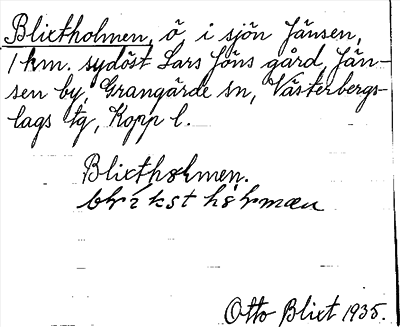 Blixtholmen, ö i sjön Jänsen,
1 km. sydöst Lars Jöns gård, Jän-
sen by, Grangärde sn, Västerbergs-
lags tg, Kopp l.
Blixtholmen.
Otto Blixt 1935.